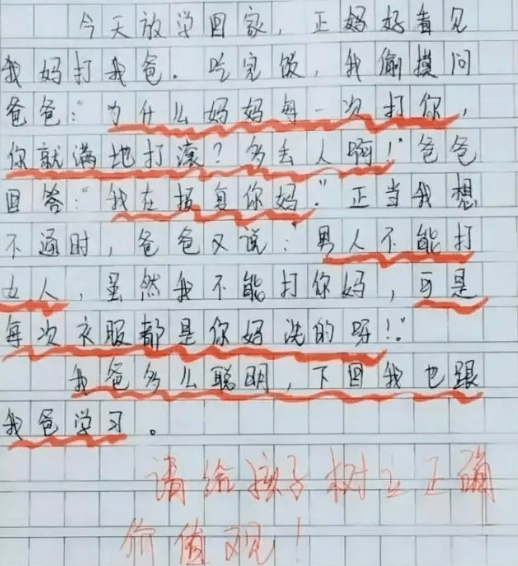 今天放学回家，正妈好看见
我妈打我爸．吃完饭，我偷摸问
爸爸：“为什么妈妈每一次打你，
你就满地打滚？多丢人啊！”爸爸
回答：“我在报复你妈．”正当我想
不通时，爸爸又说：男人不能打
女人，虽然我不能打你妈，可是
每次衣服都是你妈洗的呀！．”
我爸多么聪明，下回我也跟
我爸学习。
请给孩子树立正确
价值观！